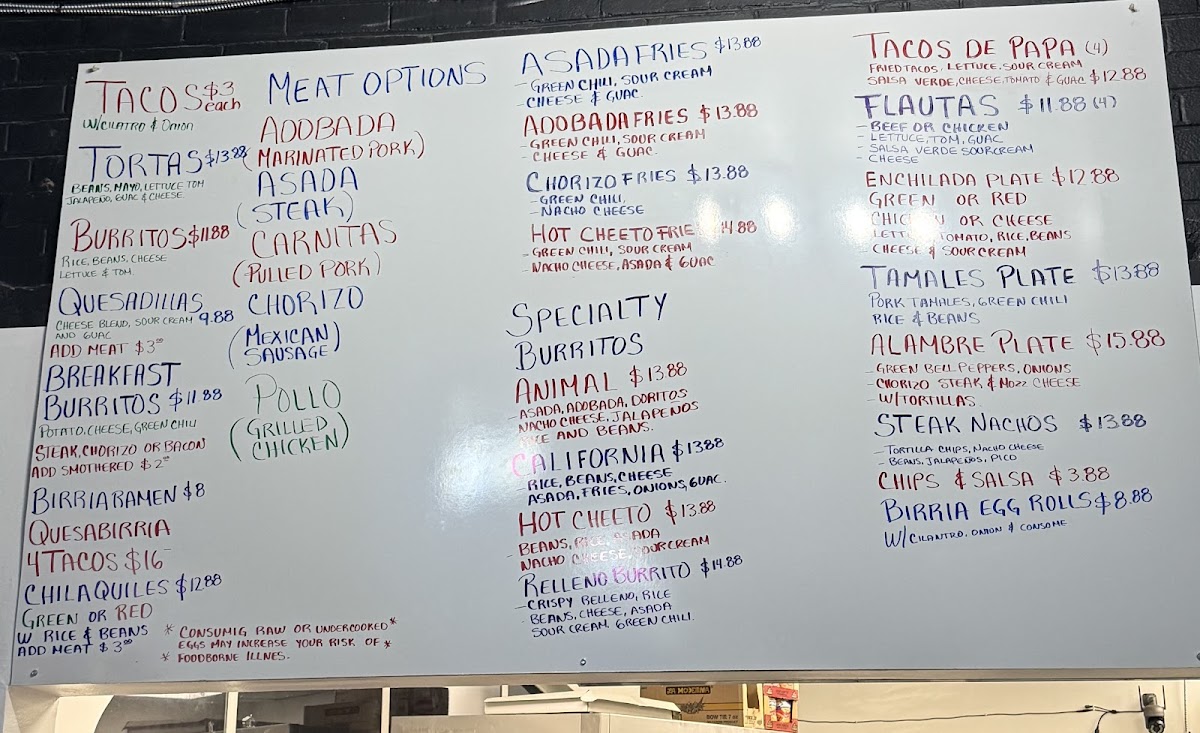 TACOS $3 each
W/CILATRO & ONION
TORTAS $13.88
BEANS, MAYO, LETTUCE TOM
JALAPEÑO, GUAC & CHEESE
BURRITOS $11.88
RICE, BEANS, CHEESE
LETTUCE & TOM.
QUESADILLAS 9.88
CHEESE BLEND, SOUR CREAM
AND GUAC
ADD MEAT $3.00
BREAKFAST
BURRITOS $11.88
POTATO, CHEESE, GREEN CHILI
STEAK, CHORIZO OR BACON
ADD SMOTHERED $2.00
BIRRIA RAMEN $8
QUESABIRRIA
4 TACOS $16
CHILAQUILES $12.88
GREEN OR RED
W RICE & BEANS
ADD MEAT $3.00
MEAT OPTIONS
ADOBADA
(MARINATED PORK)
ASADA
(STEAK)
CARNITAS
(PULLED PORK)
CHORIZO
(MEXICAN
SAUSAGE)
POLLO
(GRILLED
CHICKEN)
* CONSUMIG RAW OR UNDERCOOKED *
EGGS MAY INCREASE YOUR RISK OF *
* FOODBORNE ILLNES.
ASADA FRIES $13.88
- GREEN CHILI, SOUR CREAM
- CHEESE & GUAC.
ADOBADA FRIES $13.88
- GREEN CHILI, SOUR CREAM
- CHEESE & GUAC.
CHORIZO FRIES $13.88
- GREEN CHILI,
- NACHO CHEESE
HOT CHEETO FRIE 14.88
- GREEN CHILI, SOUR CREAM
- NACHO CHEESE, ASADA & GUAC
SPECIALTY
BURRITOS
ANIMAL $13.88
- ASADA, ADOBADA, DORITOS
NACHO CHEESE, JALAPEÑOS
RICE AND BEANS.
CALIFORNIA $13.88
- RICE, BEANS, CHEESE
ASADA, FRIES, ONIONS, GUAC.
HOT CHEETO $13.88
- BEANS, RICE, ASADA
NACHO CHEESE, SOUR CREAM
RELLENO BURRITO $14.88
- CRISPY RELLENO, RICE
- BEANS, CHEESE, ASADA
SOUR CREAM, GREEN CHILI.
TACOS DE PAPA (4)
FRIED TACOS, LETTUCE, SOUR CREAM
SALSA VERDE, CHEESE, TOMATO & GUAC $12.88
FLAUTAS $11.88 (4)
- BEEF OR CHICKEN
- LETTUCE, TOM, GUAC
- SALSA VERDE SOUR CREAM
- CHEESE
ENCHILADA PLATE $12.88
GREEN OR RED
CHICKEN OR CHEESE
LETTUCE, TOMATO, RICE, BEANS
CHEESE & SOUR CREAM
TAMALES PLATE $13.88
PORK TAMALES, GREEN CHILI
RICE & BEANS
ALAMBRE PLATE $15.88
- GREEN BELL PEPPERS, ONIONS
- CHORIZO STEAK & MOZZ CHEESE
- W/TORTILLAS.
STEAK NACHOS $13.88
- TORTILLA CHIPS, NACHO CHEESE
- BEANS, JALAPEÑOS, PICO
CHIPS & SALSA $3.88
BIRRIA EGG ROLLS $8.88
W/ CILANTRO, ONION & CONSOME